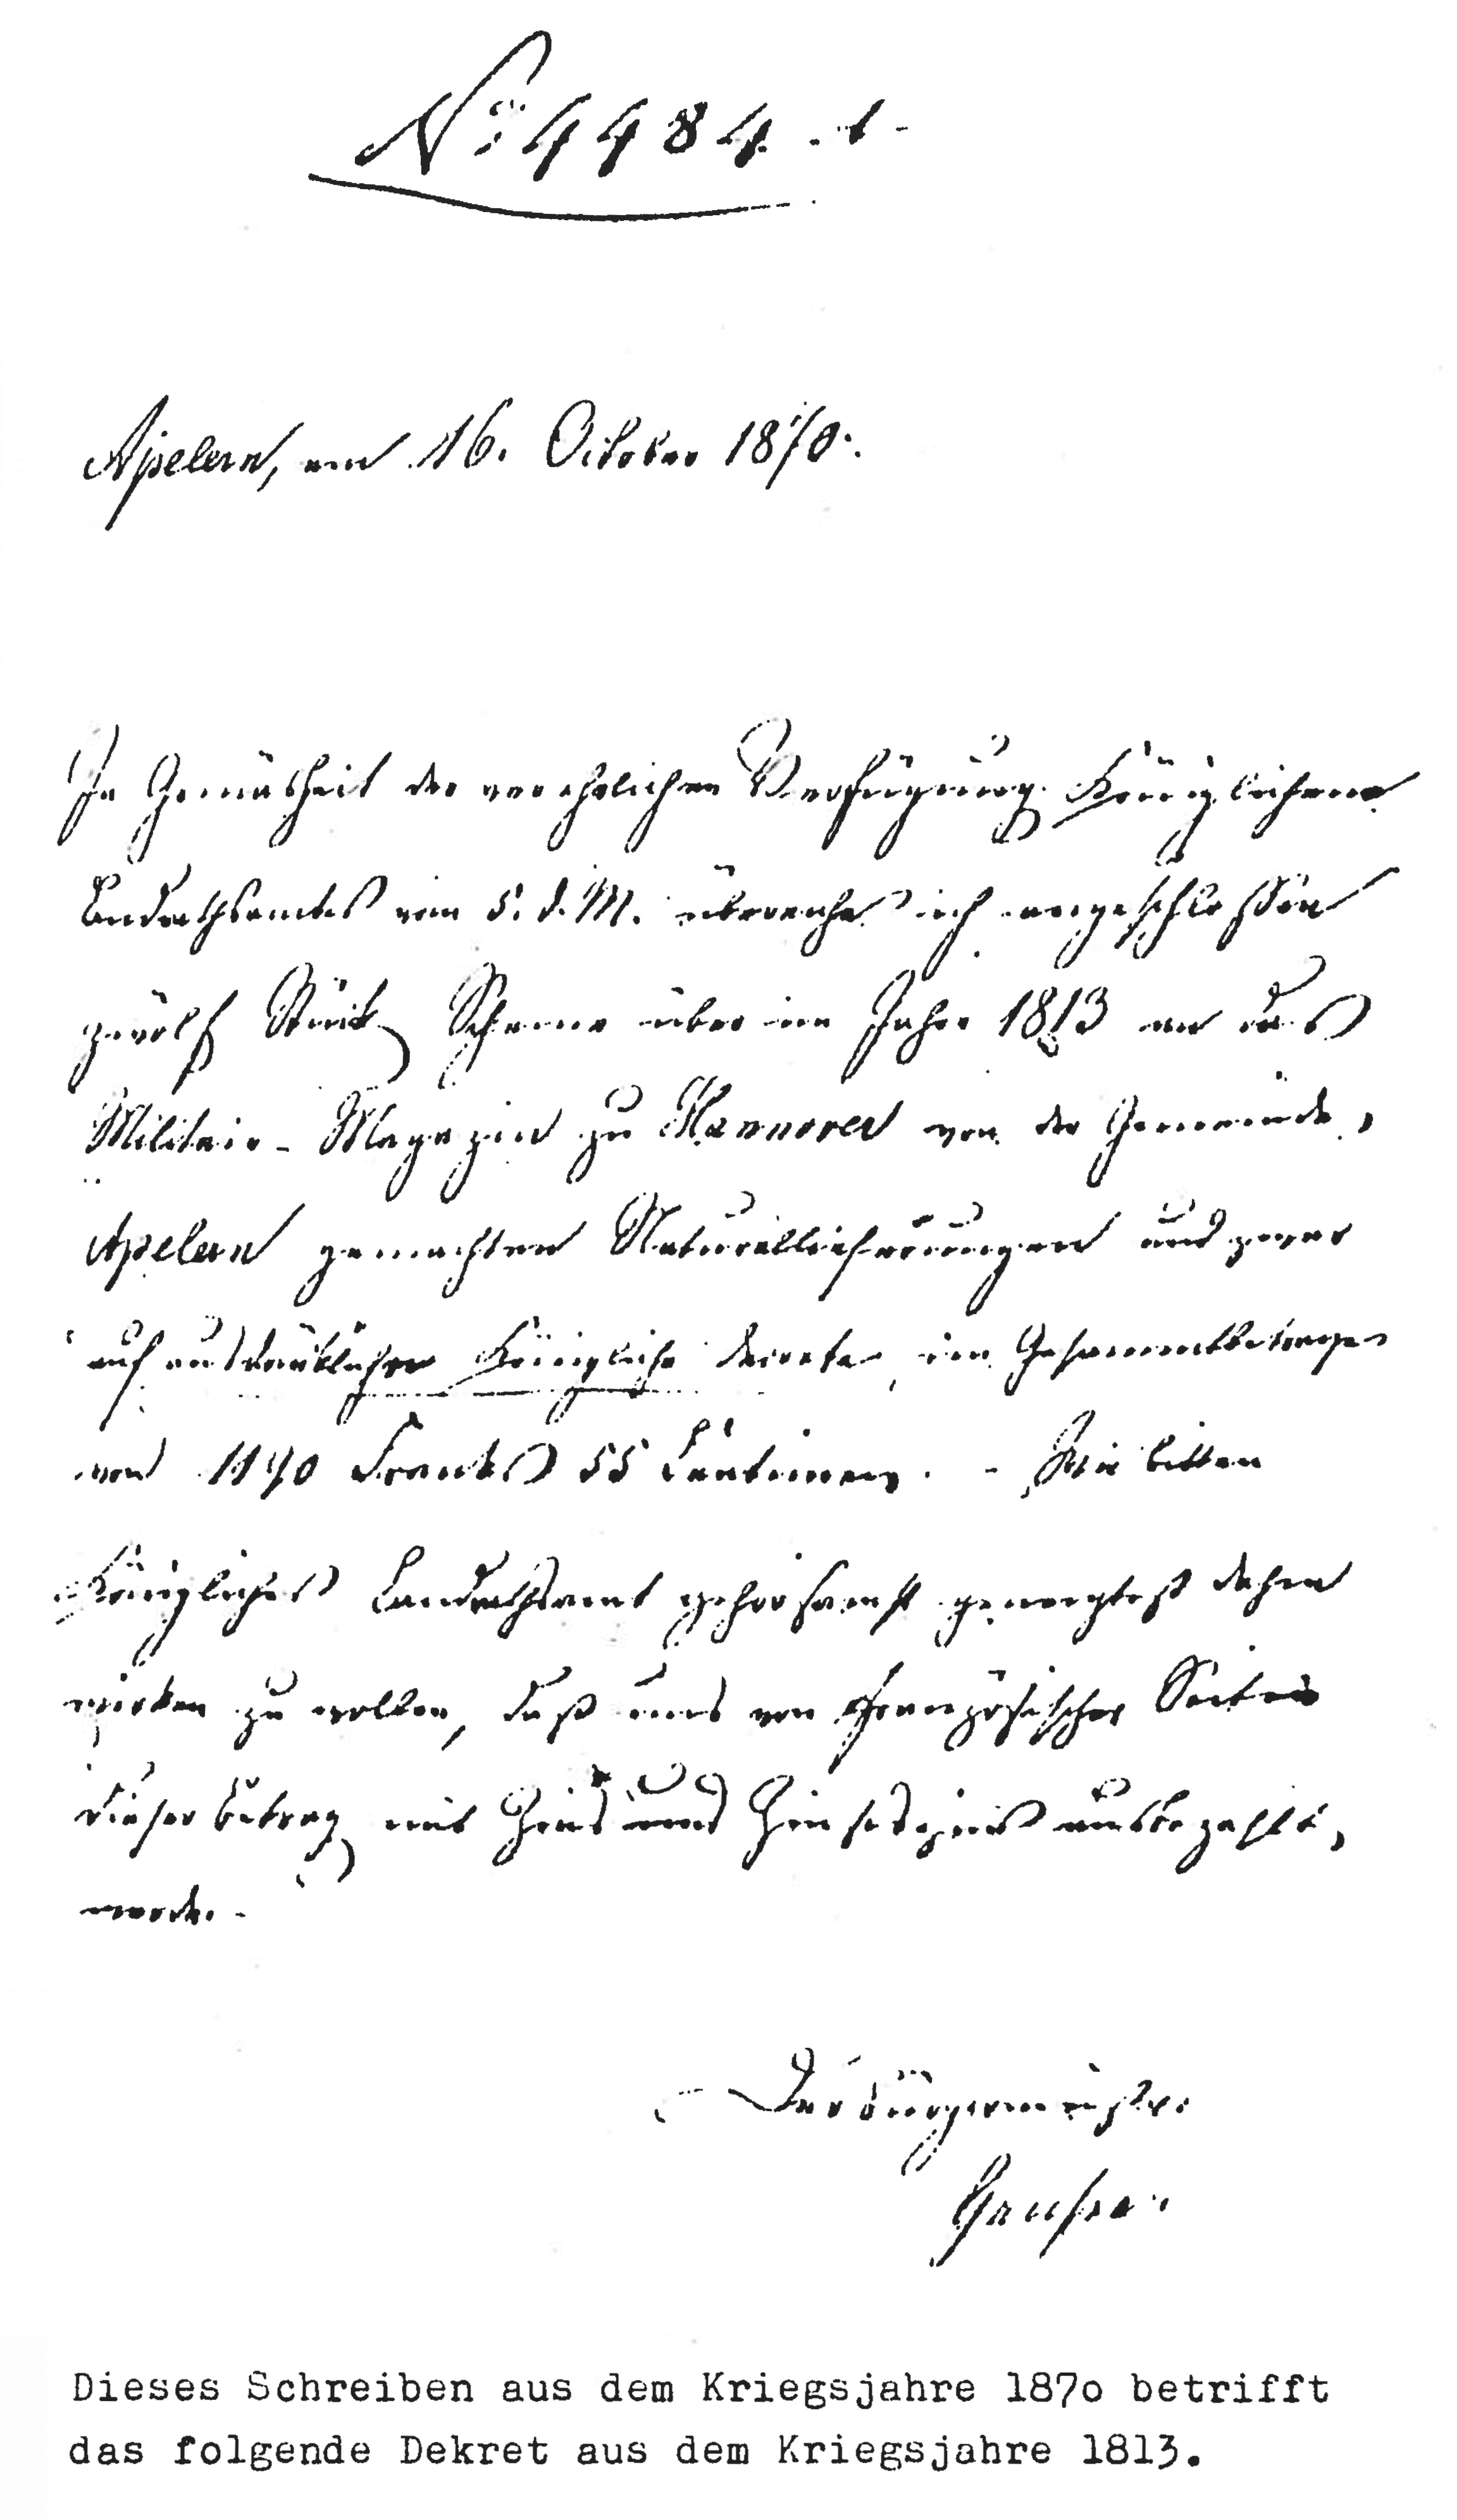 No: 4484.
Apelern, am 16. October 1870.
In Gemäsheit der verehrlichen Verfügung Königlichen
Landrathsamtes vom 5. d. M. überreiche ich angeschlossen
zwölf Stück Scheine über im Jahre 1813 an das
Militair-Magazin zu Hannover von der Gemeinde
Apelern gemachten Naturallieferungen und zwar
auf ausdrücklichen Königliche Decrete, im Gesammtbetrage
von 1170 Franks 55 Centimen. - Wir bitten
Königliches Landrathsamt gehorsamst geneigtest dahin
wirken zu wollen, daß uns von französischer Seite
dieser Betrag mit Zins und Zinseszins ausbezahlt
werde. -
Der Bürgermeister
Dieses Schreiben aus dem Kriegsjahre 187o betrifft
das folgende Dekret aus dem Kriegsjahre 1813.